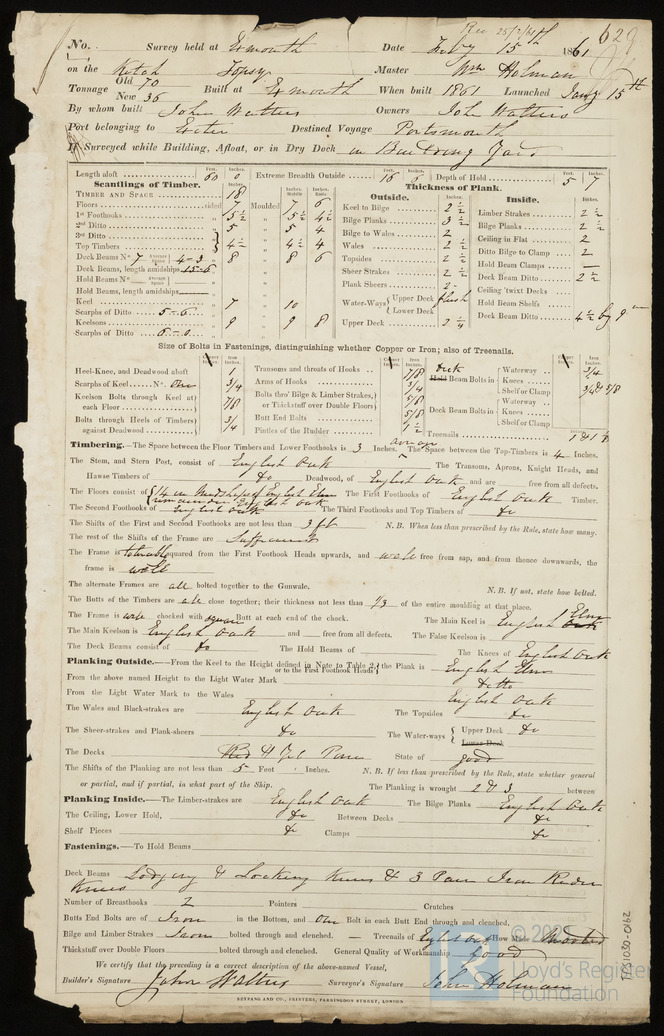 Rec 25/2/61
No. Survey held at Exmouth Date Feby 15th 1861 623
on the Ketch Topsy Master Wm Holman
Tonnage Old 70 New 36 Built at Exmouth When built 1861 Launched Jany 15th
By whom built John Walters Owners John Walters
Port belonging to Exeter Destined Voyage Portsmouth
If Surveyed while Building, Afloat, or in Dry Dock in Building Yard
Length aloft Feet. 60 Inches. 0 Extreme Breadth Outside Feet. 16 Inches. 6 Depth of Hold Feet. 5 Inches. 7
Scantlings of Timber. Thickness of Plank.
TIMBER AND SPACE 18 Outside. Inside.
Floors sided 7 Moulded 7 6 Keel to Bilge 2 1/2 Limber Strakes 2 1/2
1st Foothooks 5 1/2 5 1/2 4 1/2 Bilge Planks 3 1/2 Bilge Planks 2 1/2
2nd Ditto 5 5 4 Bilge to Wales 2 Ceiling in Flat 2
3rd Ditto Wales 2 1/2 Ditto Bilge to Clamp 2
Top Timbers 4 1/2 4 1/2 4 Topsides 2 1/2 Hold Beam Clamps —
Deck Beams No. 7 Average Space 4-3 8 8 6 Sheer Strakes 2 1/2 Deck Beam Ditto 2 1/2
Deck Beams, length amidships 15-6 Plank Sheers 2 Ceiling 'twixt Decks
Hold Beams No. — Average Space — Water-Ways Upper Deck flush Lower Deck Hold Beam Shelfs
Hold Beams, length amidships
Keel 7 10 Upper Deck 2 1/4 Deck Beam Ditto 4 1/2 by 9 in
Scarphs of Ditto 5-6
Keelsons 9 9 8
Scarphs of Ditto 6-0
Size of Bolts in Fastenings, distinguishing whether Copper or Iron; also of Treenails.
Heel-Knee, and Deadwood abaft 1 Transoms and throats of Hooks 7/8 Deck Hold Beam Bolts in Waterway 3/4
Scarphs of Keel No. One 3/4 Arms of Hooks 3/4 Knees
Keelson Bolts through Keel at each Floor 7/8 Bolts thro' Bilge & Limber Strakes, or Thickstuff over Double Floors 5/8 Shelf or Clamp 3/4 & 5/8
Bolts through Heels of Timbers against Deadwood 3/4 Butt End Bolts 5/8 Deck Beam Bolts in Waterway Knees Shelf or Clamp
Pintles of the Rudder 1 1/2 Treenails 1 & 1 1/8
Timbering.—The Space between the Floor Timbers and Lower Foothooks is 3 Inches. average The Space between the Top-Timbers is 4 Inches.
The Stem, and Stern Post, consist of English Oak The Transoms, Aprons, Knight Heads, and
Hawse Timbers of do Deadwood, of English Oak and are free from all defects.
The Floors consist of 14 in Midships of English Elm remainder English Oak The First Foothooks of English Oak Timber.
The Second Foothooks of English Oak The Third Foothooks and Top Timbers of do
The Shifts of the First and Second Foothooks are not less than 3 ft N.B. When less than prescribed by the Rule, state how many.
The rest of the Shifts of the Frame are Sufficient
The Frame is tolerably squared from the First Foothook Heads upwards, and well free from sap, and from thence downwards, the
frame is well
The alternate Frames are all bolted together to the Gunwale. N.B. If not, state how bolted.
The Butts of the Timbers are all close together; their thickness not less than 1/3 of the entire moulding at that place.
The Frame is well chocked with square Butt at each end of the chock. The Main Keel is English Elm Oak
The Main Keelson is English Oak and free from all defects. The False Keelson is
The Deck Beams consist of do The Hold Beams of The Knees of English Oak
Planking Outside.—From the Keel to the Height defined in Note to Table 2, or to the First Foothook Heads the Plank is English Elm
From the above named Height to the Light Water Mark ditto
From the Light Water Mark to the Wales English Oak
The Wales and Black-strakes are English Oak The Topsides do
The Sheer-strakes and Plank-sheers do The Water-ways Upper Deck do Lower Deck
The Decks Red & Yel Pine State of good
The Shifts of the Planking are not less than 5 Feet Inches. N.B. If less than prescribed by the Rule, state whether general
or partial, and if partial, in what part of the Ship. The Planking is wrought 2 & 3 between
Planking Inside.—The Limber-strakes are English Oak The Bilge Planks English Oak
The Ceiling, Lower Hold, do Between Decks do
Shelf Pieces do Clamps do
Fastenings.—To Hold Beams
Deck Beams Lodging & Locking Knees & 3 Pair Iron Rider
Knees
Number of Breasthooks 2 Pointers Crutches
Butts End Bolts are of Iron in the Bottom, and One Bolt in each Butt End through and clenched.
Bilge and Limber Strakes Iron bolted through and clenched. — Treenails of English Oak How Made
Thickstuff over Double Floors bolted through and clenched. General Quality of Workmanship Good
We certify that the preceding is a correct description of the above-named Vessel,
Builder's Signature John Walters Surveyor's Signature John Holman
REYPANG AND CO., PRINTERS, FARRINGDON STREET, LONDON
© 2020
Lloyd's Register
Foundation